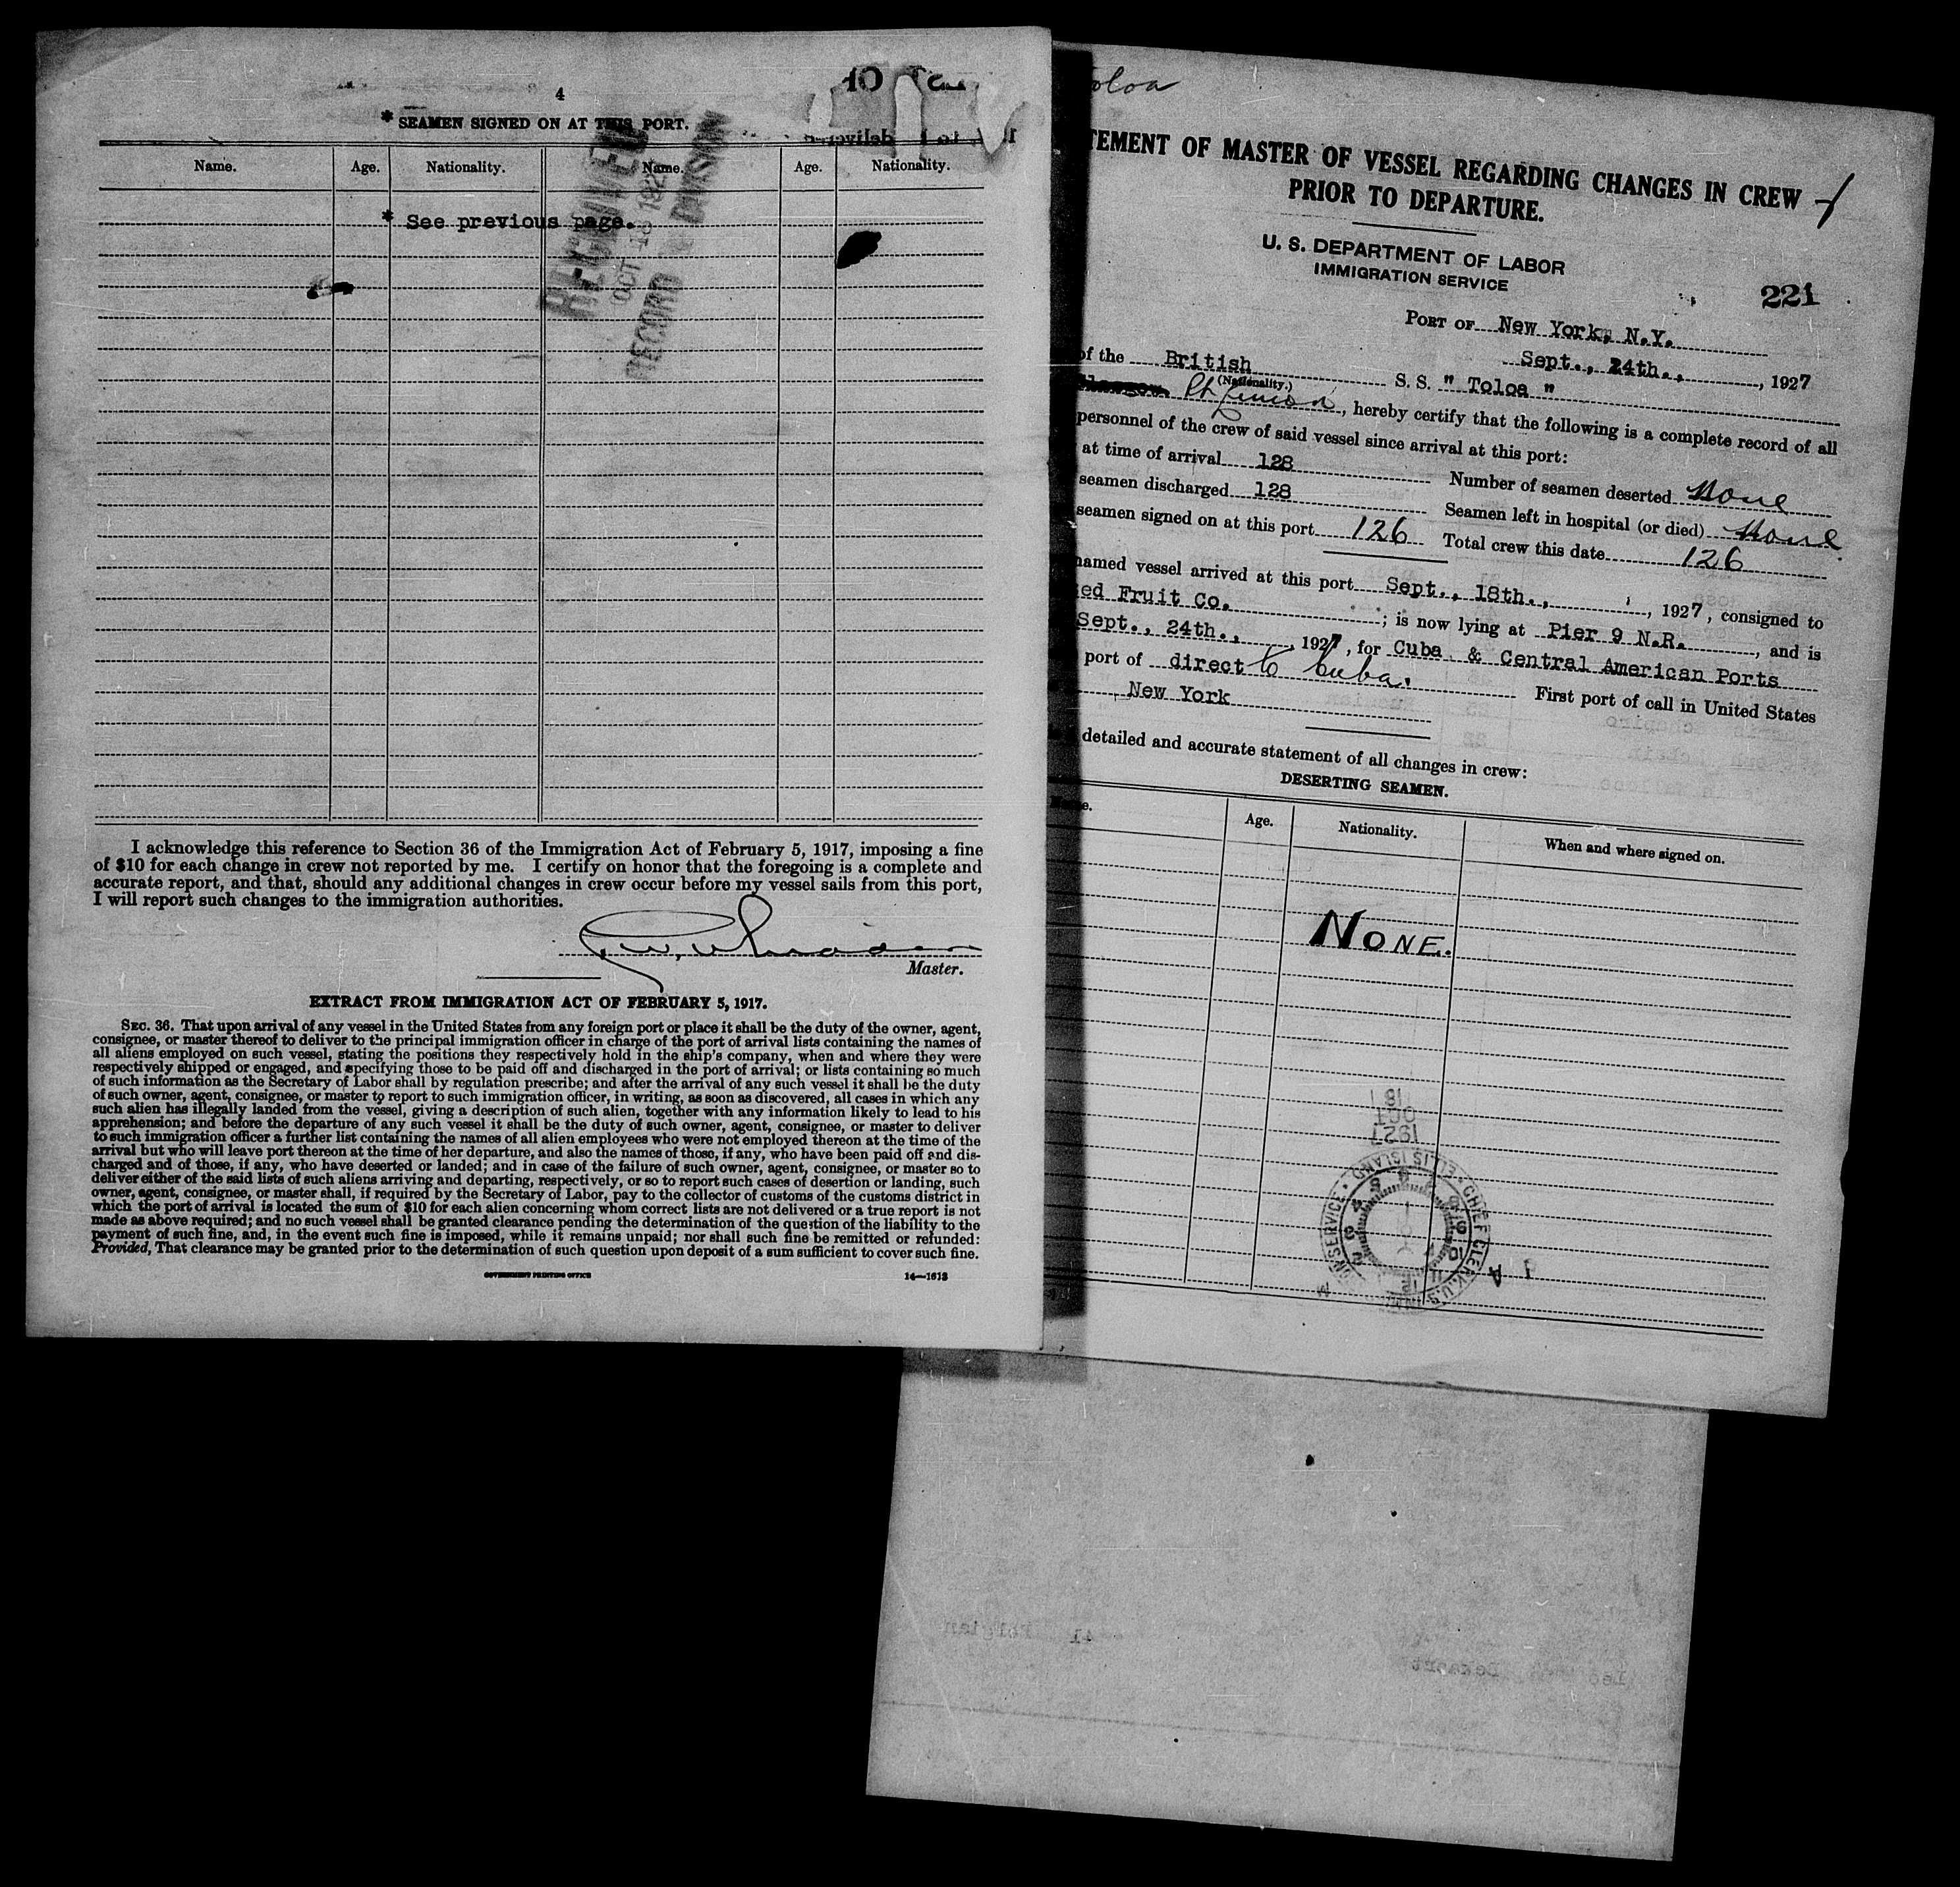 4
* SEAMEN SIGNED ON AT THIS PORT.
Name. Age. Nationality. Name. Age. Nationality.
* See previous page.
RECEIVED
OCT 18 192
RECORD DIVISION
I acknowledge this reference to Section 36 of the Immigration Act of February 5, 1917, imposing a fine
of $10 for each change in crew not reported by me. I certify on honor that the foregoing is a complete and
accurate report, and that, should any additional changes in crew occur before my vessel sails from this port,
I will report such changes to the immigration authorities.
Master.
EXTRACT FROM IMMIGRATION ACT OF FEBRUARY 5, 1917.
SEC. 36. That upon arrival of any vessel in the United States from any foreign port or place it shall be the duty of the owner, agent,
consignee, or master thereof to deliver to the principal immigration officer in charge of the port of arrival lists containing the names of
all aliens employed on such vessel, stating the positions they respectively hold in the ship's company, when and where they were
respectively shipped or engaged, and specifying those to be paid off and discharged in the port of arrival; or lists containing so much
of such information as the Secretary of Labor shall by regulation prescribe; and after the arrival of any such vessel it shall be the duty
of such owner, agent, consignee, or master to report to such immigration officer, in writing, as soon as discovered, all cases in which any
such alien has illegally landed from the vessel, giving a description of such alien, together with any information likely to lead to his
apprehension; and before the departure of any such vessel it shall be the duty of such owner, agent, consignee, or master to deliver
to such immigration officer a further list containing the names of all alien employees who were not employed thereon at the time of the
arrival but who will leave port thereon at the time of her departure, and also the names of those, if any, who have been paid off and dis-
charged and of those, if any, who have deserted or landed; and in case of the failure of such owner, agent, consignee, or master so to
deliver either of the said lists of such aliens arriving and departing, respectively, or so to report such cases of desertion or landing, such
owner, agent, consignee, or master shall, if required by the Secretary of Labor, pay to the collector of customs of the customs district in
which the port of arrival is located the sum of $10 for each alien concerning whom correct lists are not delivered or a true report is not
made as above required; and no such vessel shall be granted clearance pending the determination of the question of the liability to the
payment of such fine, and, in the event such fine is imposed, while it remains unpaid; nor shall such fine be remitted or refunded:
Provided, That clearance may be granted prior to the determination of such question upon deposit of a sum sufficient to cover such fine.
GOVERNMENT PRINTING OFFICE 14—1613
oloa
TEMENT OF MASTER OF VESSEL REGARDING CHANGES IN CREW
PRIOR TO DEPARTURE.
U. S. DEPARTMENT OF LABOR
IMMIGRATION SERVICE
221
PORT OF New York, N.Y.
Sept., 24th., , 1927
of the British S. S. " Toloa "
(Nationality.)
, hereby certify that the following is a complete record of all
personnel of the crew of said vessel since arrival at this port:
at time of arrival 128 Number of seamen deserted None
seamen discharged 128 Seamen left in hospital (or died) None
seamen signed on at this port 126 Total crew this date 126
named vessel arrived at this port Sept., 18th., , 1927, consigned to
ed Fruit Co. ; is now lying at Pier 9 N.R. , and is
Sept., 24th., , 1927, for Cuba & Central American Ports
port of direct to Cuba. First port of call in United States
New York
detailed and accurate statement of all changes in crew:
DESERTING SEAMEN.
Age. Nationality. When and where signed on.
NONE.